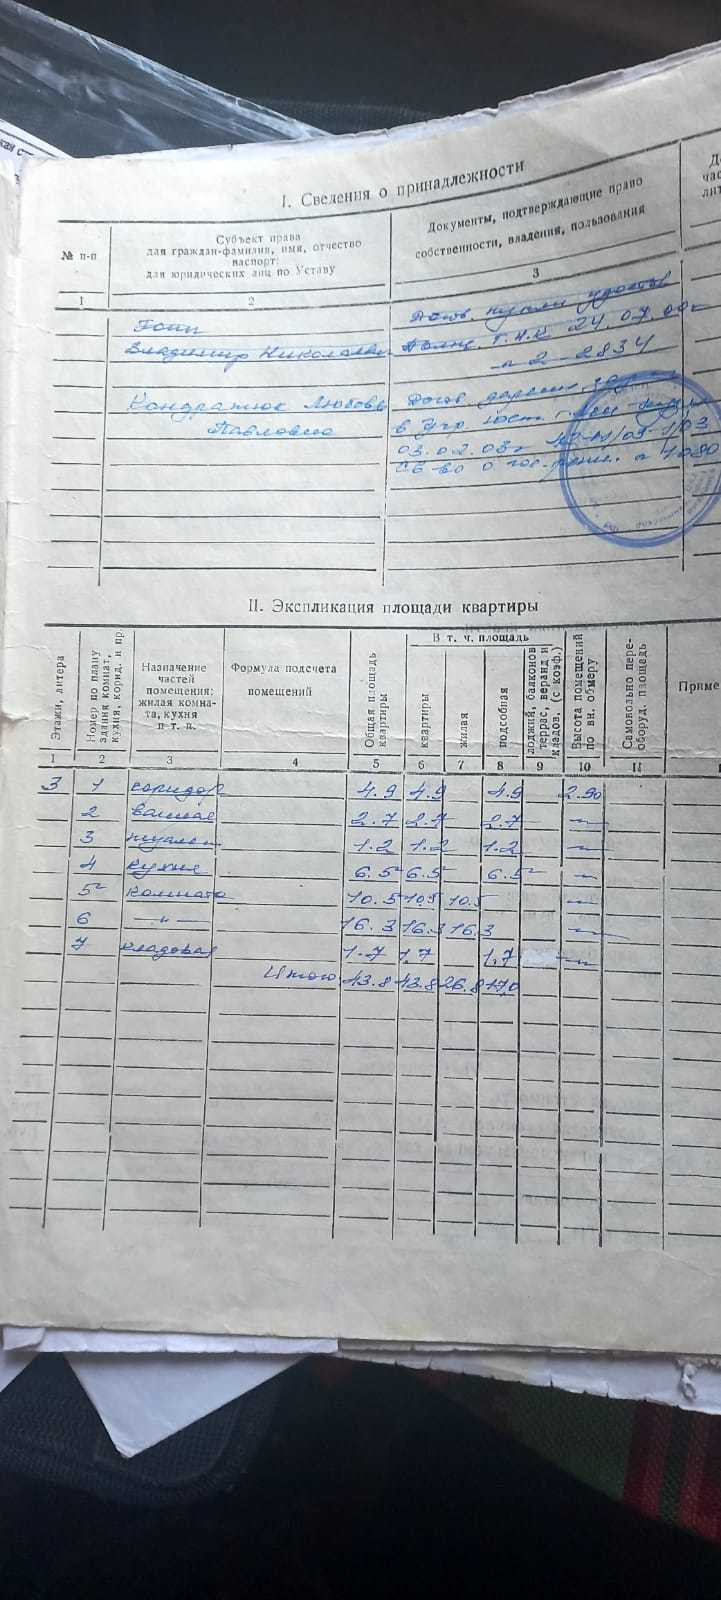 I. Сведения о принадлежности
№ п-п
Субъект права
для граждан-фамилия, имя, отчество
паспорт:
для юридических лиц по Уставу
Документы, подтверждающие право
собственности, владения, пользования
1 2 3
Владимир Николаевич
24.07.00г
п 2-2834
Кондратюк Любовь
Павловна
Догов. дарения
03.02.03г
Св-во о гос. регист.
II. Экспликация площади квартиры
Этажи, литера
Номер по плану
здания комнат,
кухня, корид. и пр
Назначение
частей
помещения:
жилая комна-
та, кухня
и т. д.
Формула подсчета
помещений
Общая площадь
квартиры
В т. ч. площадь
квартиры
жилая
подсобная
лоджий, балконов
террас, веранд и
кладов. (с коэф.)
Высота помещений
по вн. обмеру
Самовольно пере-
оборуд. площадь
Приме
1 2 3 4 5 6 7 8 9 10 11
3 1 коридор 4.9 4.9 4.9 2.90
2 ванная 2.7 2.7 2.7 –"–
3 туалет 1.2 1.2 1.2 –"–
4 кухня 6.5 6.5 6.5 –"–
5 комната 10.5 10.5 10.5 –"–
6 –"– 16.3 16.3 16.3 –"–
7 кладовая 1.7 1.7 1.7 –"–
Итого 43.8 43.8 26.8 17.0